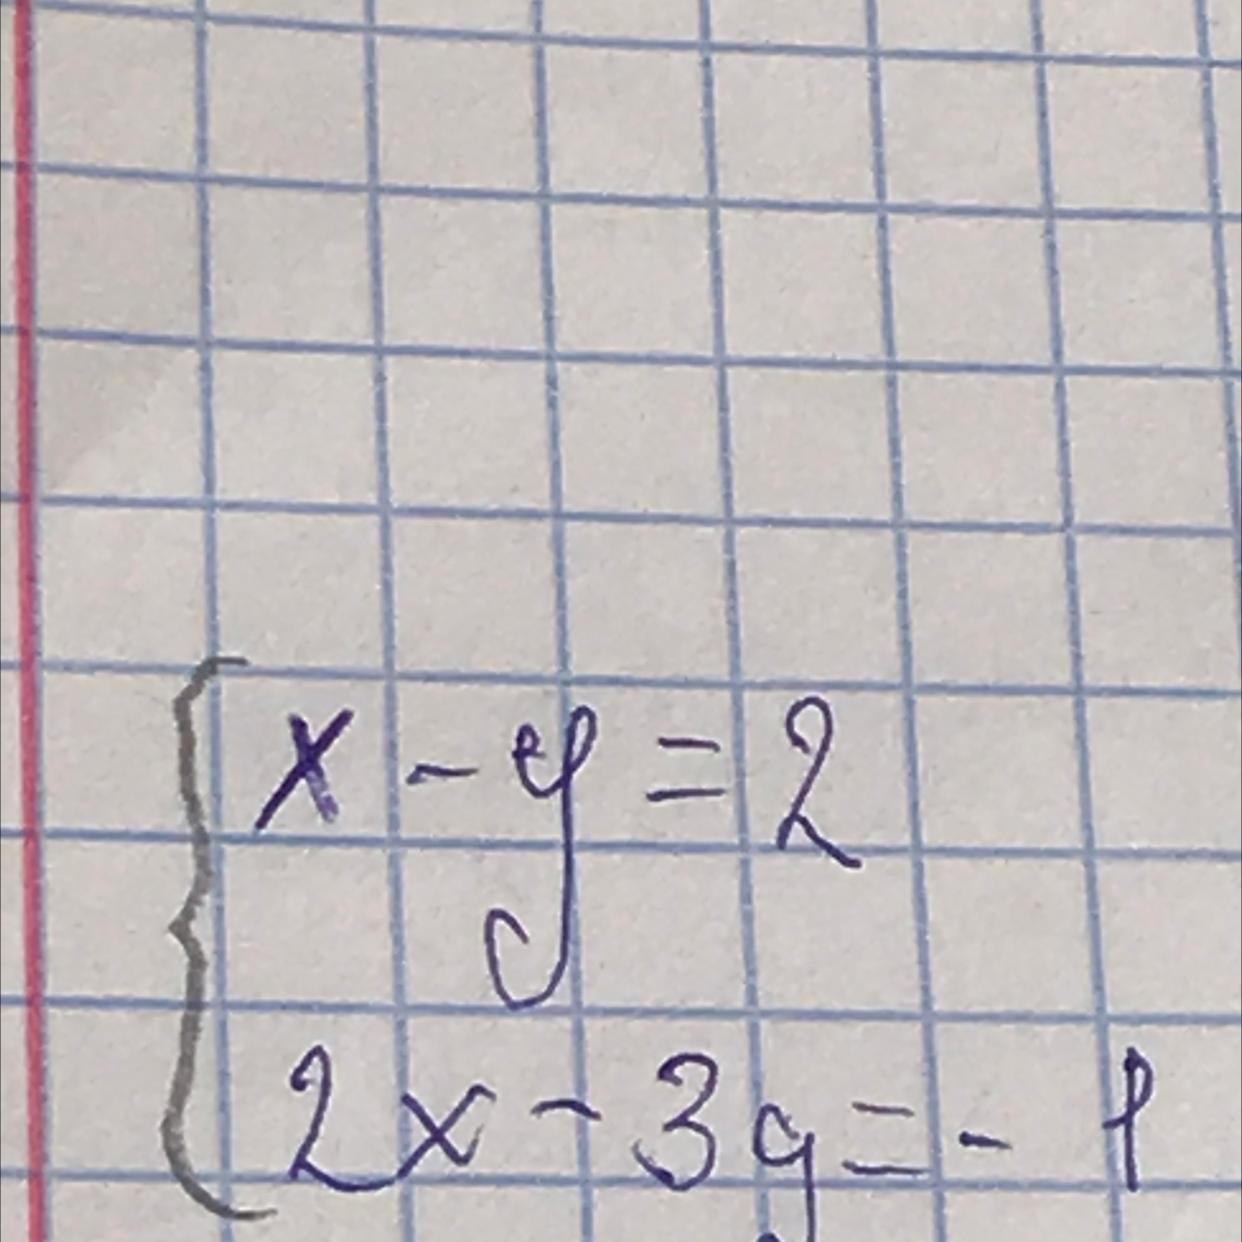 x - y = 2
2x - 3y = - 1